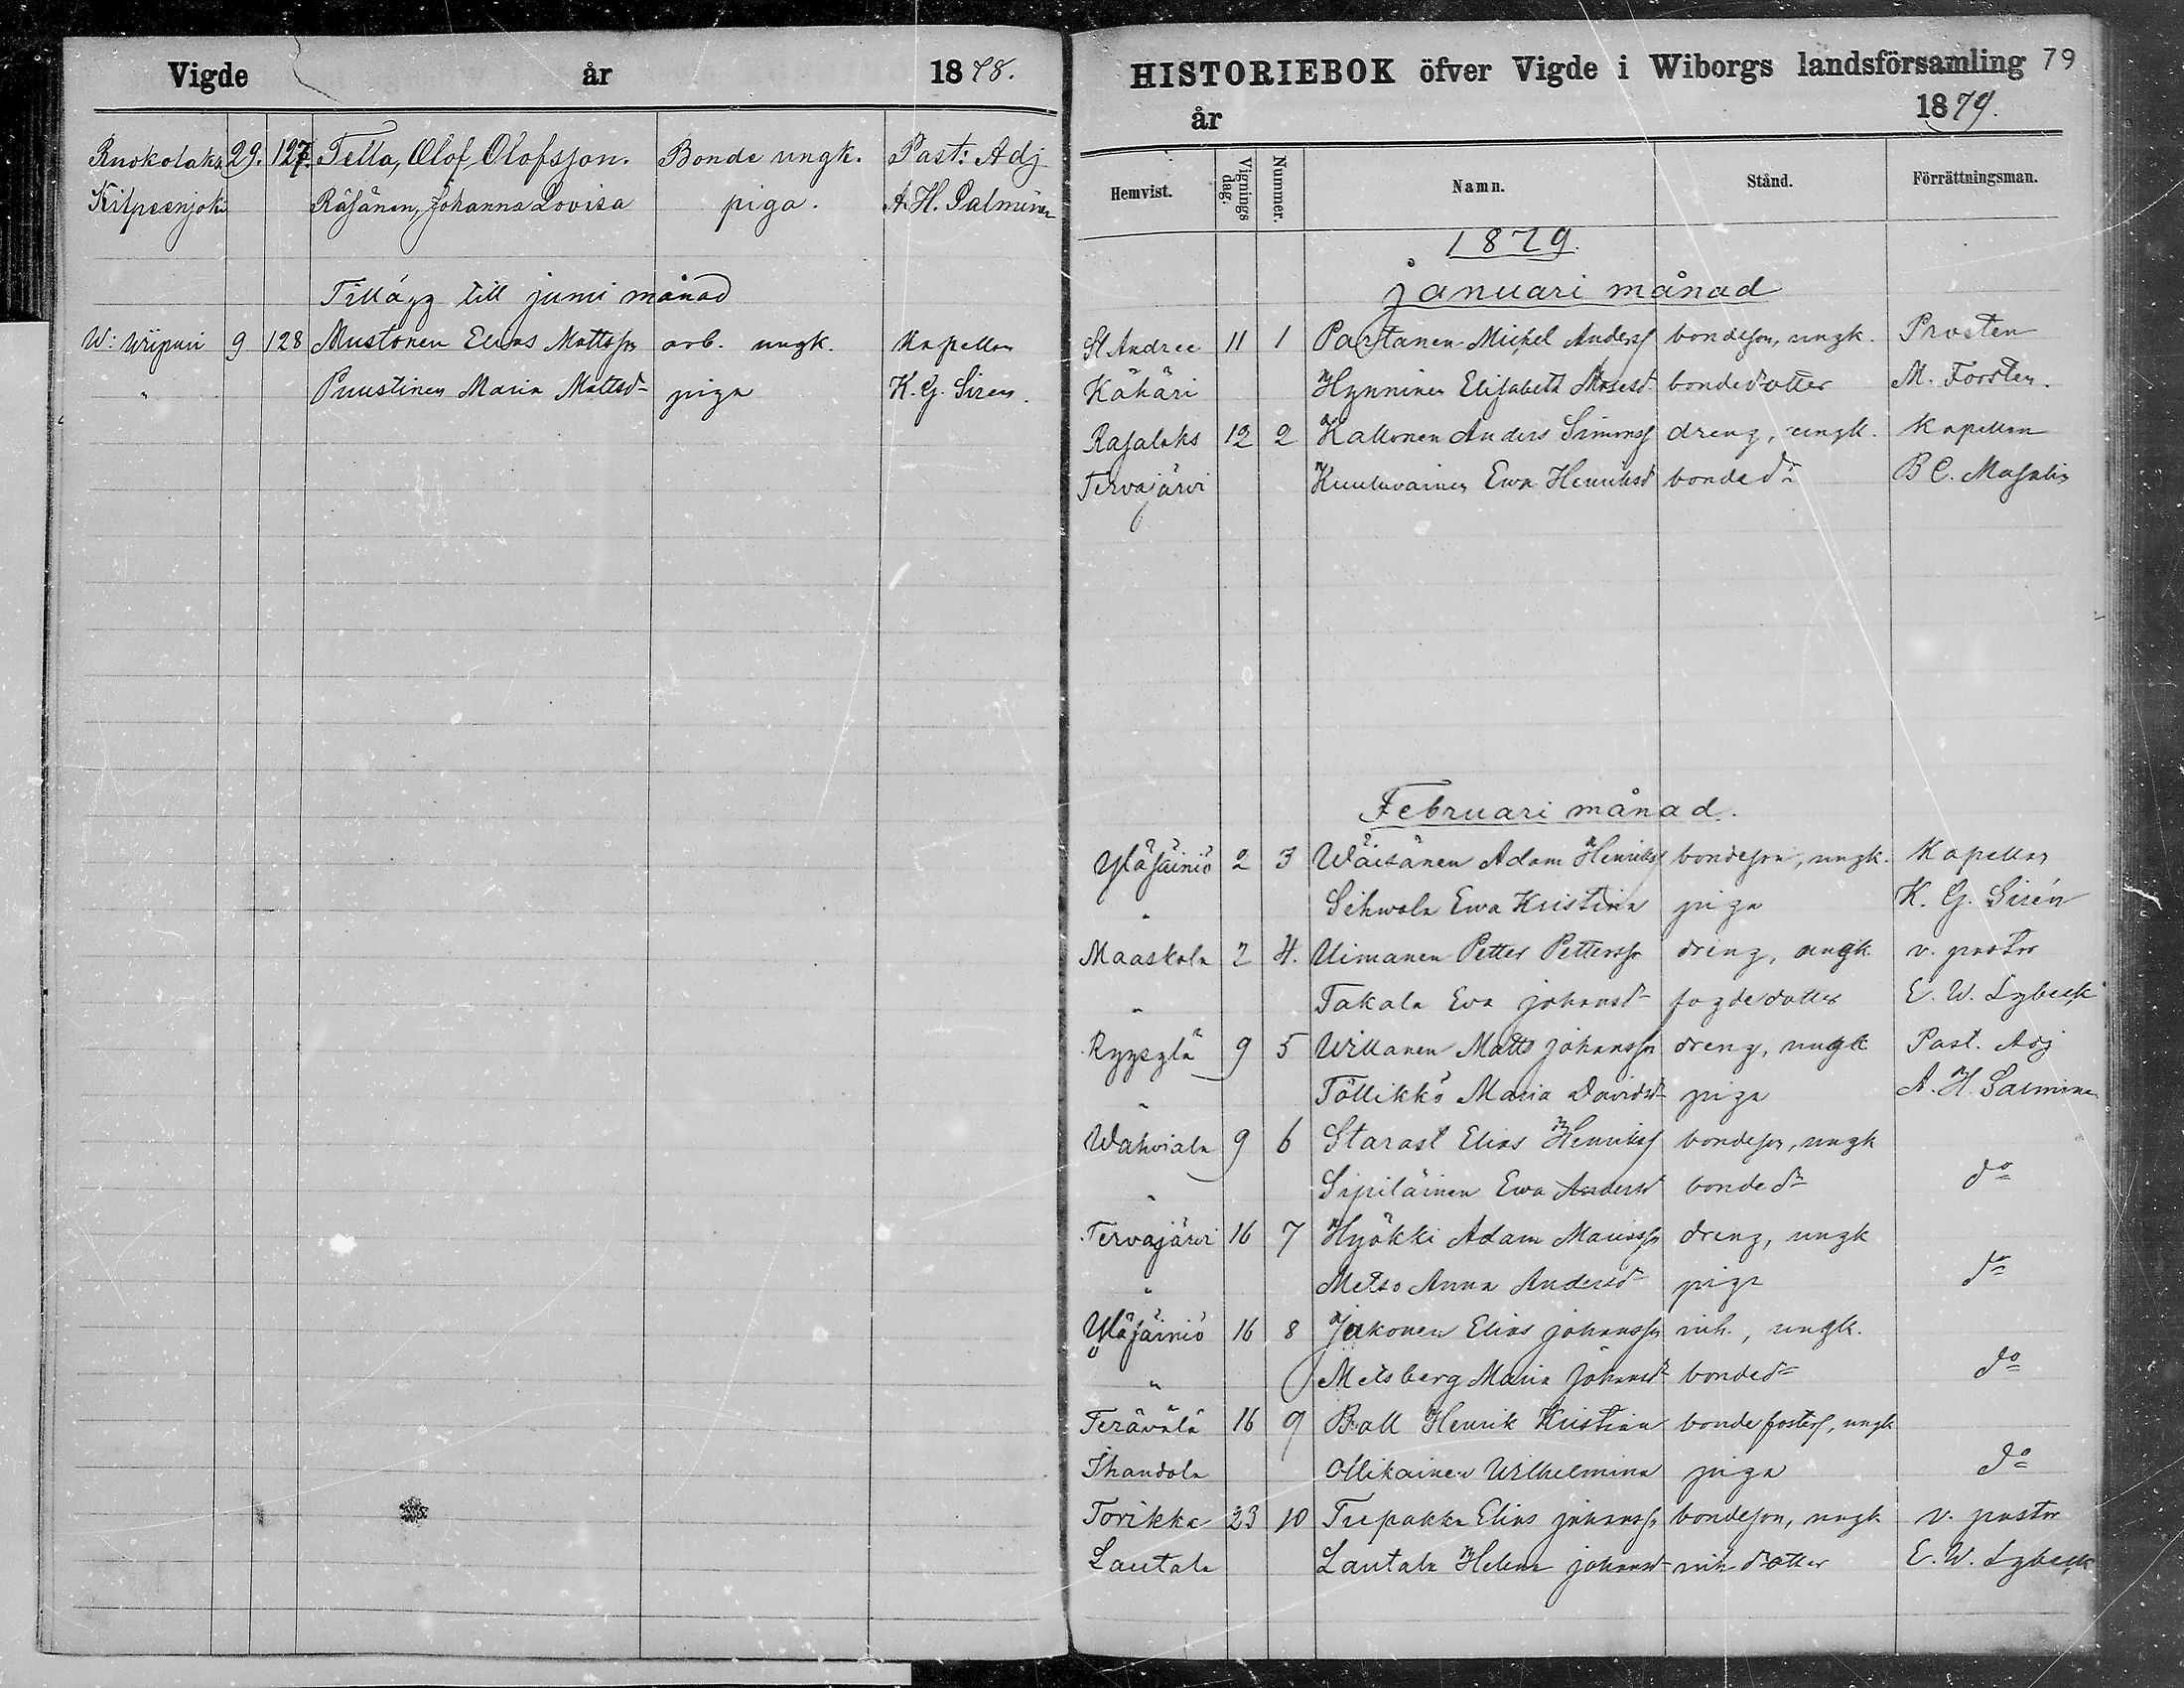 Vigde år 1878.
Ruokolaks 29. 127. Tella, Olof Olofsson. Bonde ungk. Past: Adj
Kilpeenjoki Räsänen, Johanna Lovisa piga. A. H. Salminen
Tillägg till juni månad
W: Wiipuri 9 128 Mustonen Elias Mattsson arb. ungk. Kapellan
" Puustinen Maria Mattsd piga K. G. Siren.
HISTORIEBOK öfver Vigde i Wiborgs landsförsamling 79
år 1879.
Hemvist. Vignings dag. Nummer. Namn. Stånd. Förrättningsman.
1879.
Januari månad
St Andree 11 1 Partanen Michel Anderss bondeson, ungk. Prosten
Kähäri Hynninen Elisabeth Mosesd bondedotter M. Forsten.
Rajalaks 12 2 Kallonen Anders Simonss dreng, ungk. Kapellan
Tervajärvi Kuuluvainen Ewa Henriksd bonded:r B C. Masalin
Februari månad.
Yläsäiniö 2 3 Wäisänen Adam Henrikss bondeson, ungk. Kapellan
" Sihvola Ewa Kristina piga K. G. Sirén
Maaskola 2 4. Uimanen Petter Pettersson dreng, ungk. v. pastor
" Takala Eva Johansd fogdedotter E. W. Lybeck
Ryysylä 9 5 Willanen Matts Johansson dreng, ungk Past. Adj
" Töllikkö Maria Davidsd piga A. H. Salminen
Wahviala 9 6 Starast Elias Henrikss bondeson, ungk
" Sipiläinen Ewa Andersd bonded:r d:o
Tervajärvi 16 7 Hyökki Adam Mariasson dreng, ungk
" Metso Anna Andersd piga d:o
Yläsäiniö 16 8 Jakonen Elias Johansson inh., ungk.
" Metsberg Maria Johansd bonded:r d:o
Terävälä 16 9 Ball Henrik Kristian bonde fosters, ungk
Ihandola Ollikainen Wilhelmina piga d:o
Torikka 23 10 Elias Johansson bondeson, ungk v. pastor
Lautala Lautala Helena Johansd inh dotter E. W. Lybeck